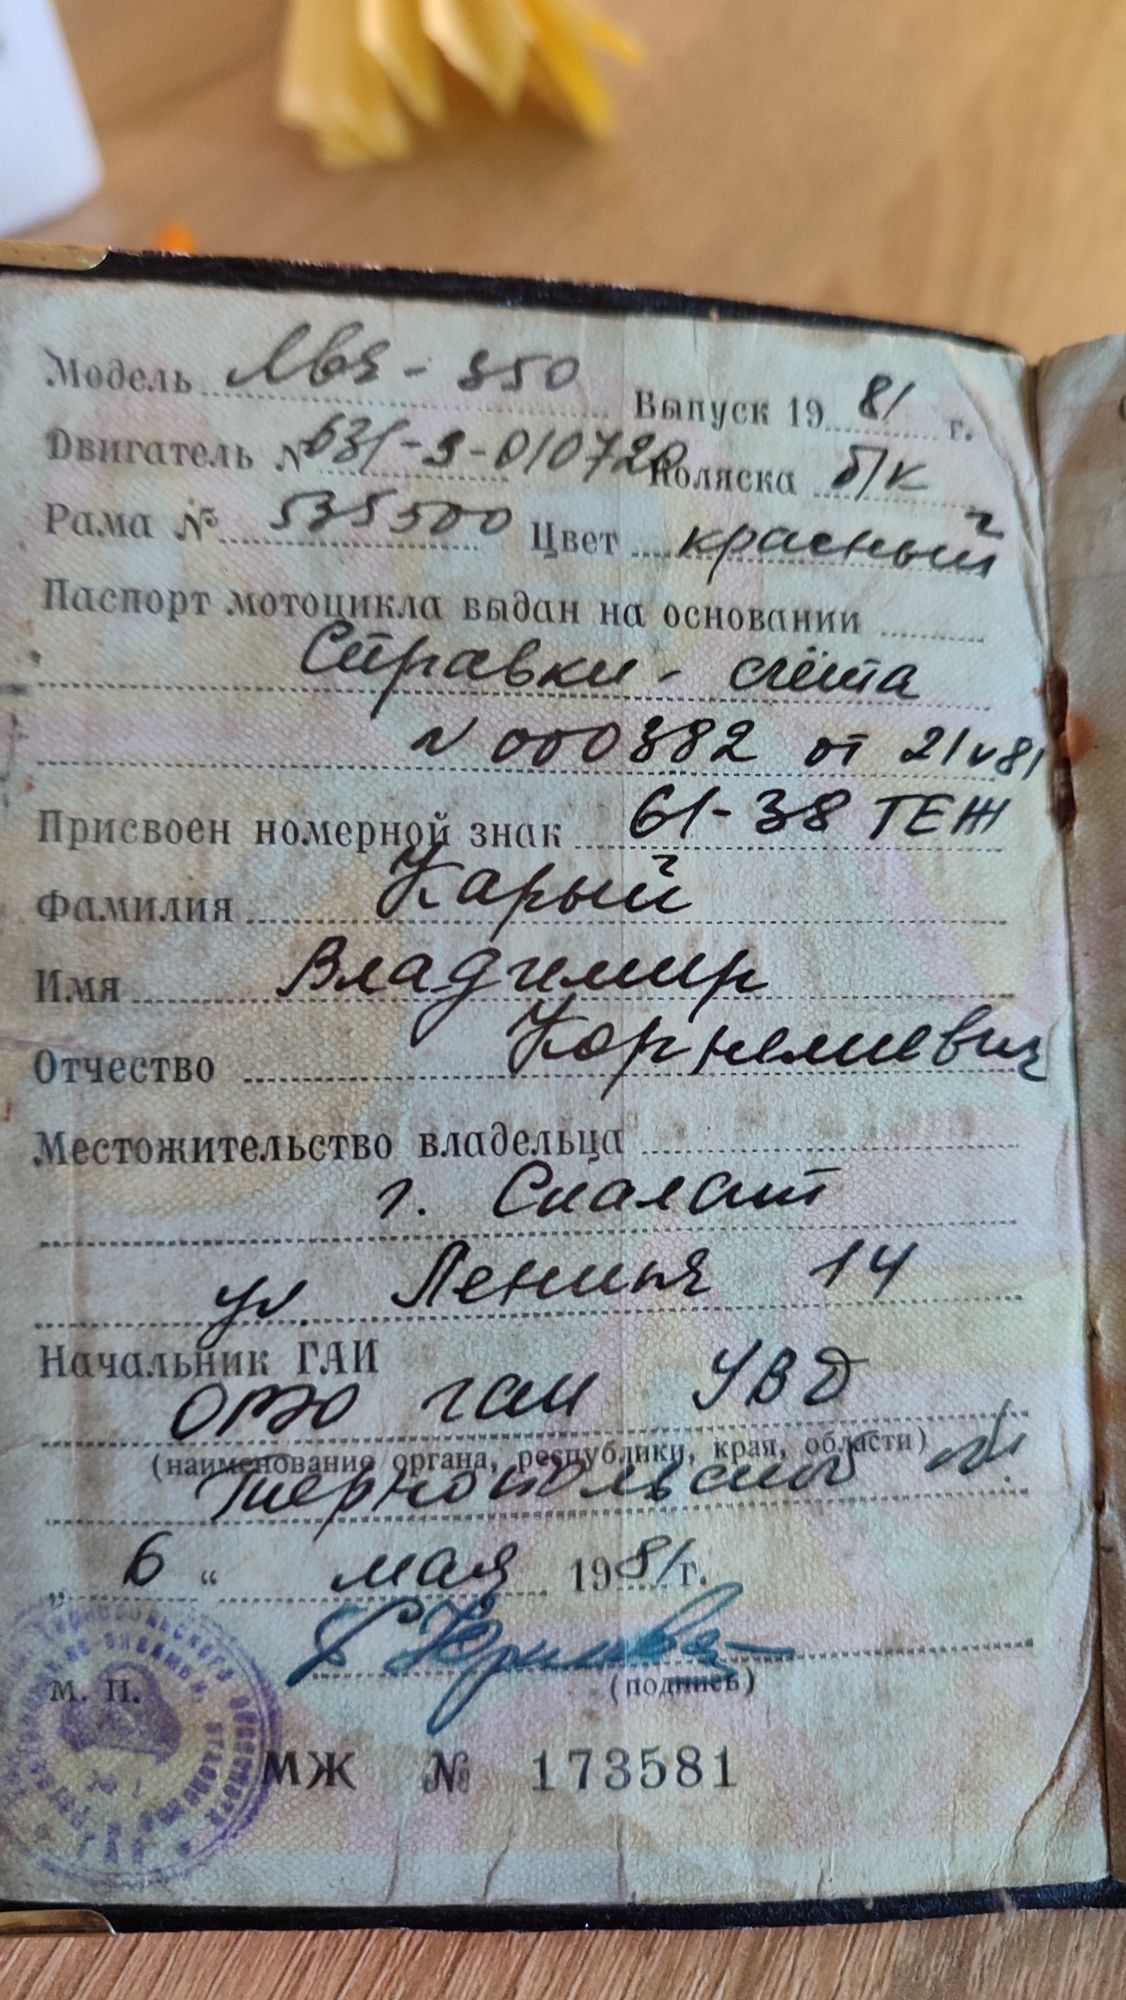 Модель Ява - 350 Выпуск 19 81 г.
Двигатель № 631-3-010720 Коляска б/к
Рама № 535500 Цвет красный
Паспорт мотоцикла выдан на основании
Справки - счёта
№ 000382 от 21 V 81
Присвоен номерной знак 61-38 ТЕЖ
Фамилия Карый
Имя Владимир
Отчество Корнелиевич
Местожительство владельца
г. Скалат
ул Ленина 14
Начальник ГАИ
ОРЭО ГАИ УВД
(наименование органа, республики, края, области)
Тернопольской
„ 6 “ мая 1981 г.
(подпись)
М. П.
МЖ № 173581